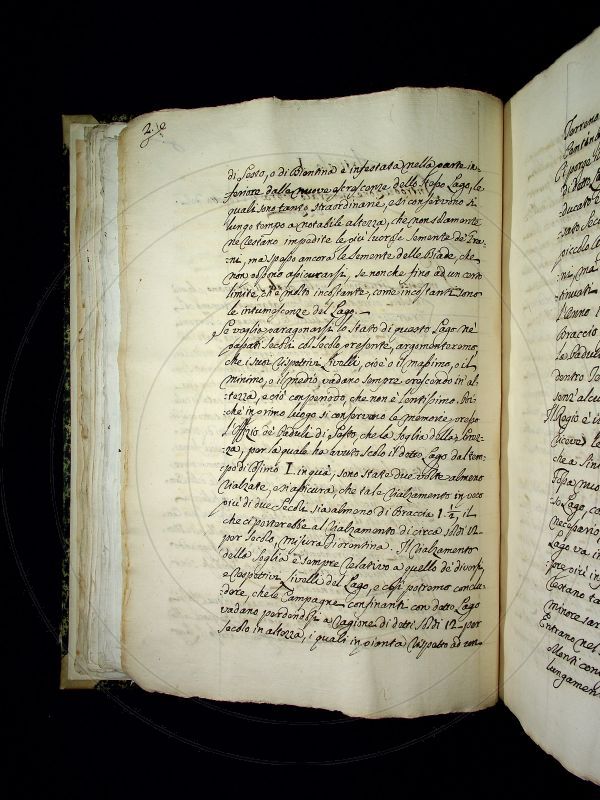 2.
di Sesto, o di Bientina è infestata nella parte in-
feriore dalle nuove escrescenze dello stesso Lago, le
quali sono tanto straordinarie, e si conservono sì
lungo tempo a notabile altezza, che non solamente
ne restano impedite le più tardive semente de' Gra-
ni, ma spesso ancora le semente delle Biade, che
non osono assicurarsi, se non che fino ad un certo
limite, che è molto incostante, come incostanti sono
le intumescenze del Lago.
Se voglia paragonarsi lo stato di questo Lago ne'
passati Secoli col Secolo presente, argomenteremo
che i suoi rispettivi livelli, cioè o il massimo, o il
minimo, o il medio, vadano sempre crescendo in al-
tezza, e ciò con periodo, che non è lentissimo. Poi-
chè in primo luogo si conservono le memorie, presso
l'Uffizio de' Paduli di Sesto, che la soglia della
per la quale ha avuto scolo il detto Lago da tem-
po di Cosimo I. in quà, sono state due volte almeno
rialzate, e si assicura, che tale rialzamento in poco
più di due Secoli sia almeno di Braccia 1 1/2, il
che ci porterebbe al rialzamento di circa soldi 12
per secolo, misura Fiorentina. Il rialzamento
della soglia è sempre relativo a quello de' diversi,
e rispettivi livelli del Lago, e così potremo conclu-
dere, che le Campagne confinanti con detto Lago
vadano perdendosi a ragione di detti soldi 12 per
secolo in altezza, i quali in pianta rispetto ad un-
Terreno
di detto
ducati
piccolo
tinuati
l'Anno
Braccio
le Paduli
dentro
senz'al
Il Regio è
riceva
che a
Lago va in
minore
Entrano nel
Monti con
lungament